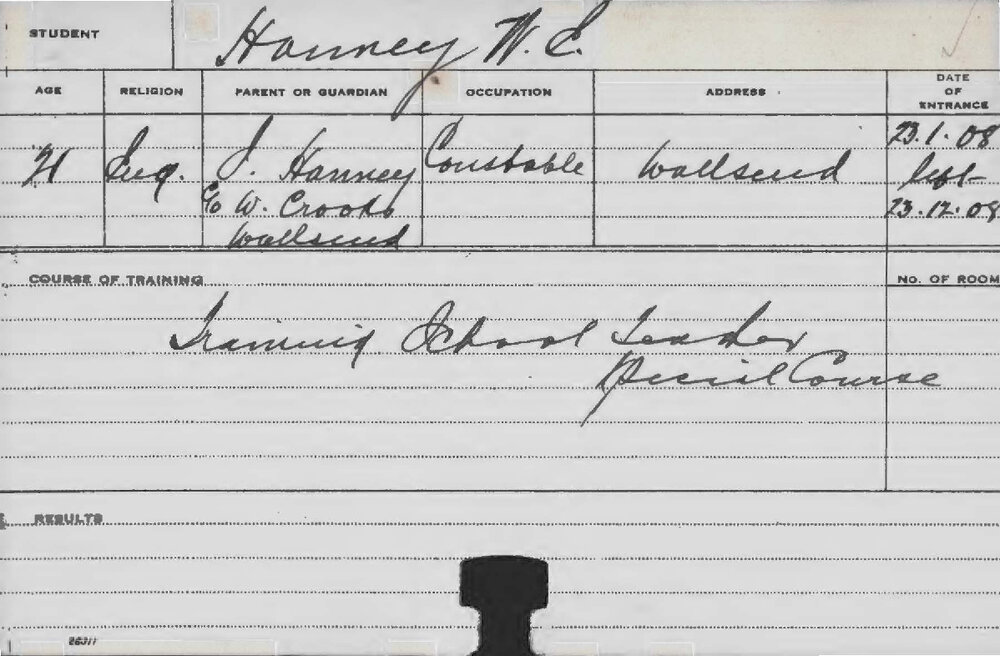 STUDENT Hanney W. E.
AGE RELIGION PARENT OR GUARDIAN OCCUPATION ADDRESS DATE OF ENTRANCE
21 Eng. J. Hanney Constable Wallsend 23.1.08
c/o W. Crooks left
Wallsend 23.12.08
COURSE OF TRAINING
No. OF ROOM
Training School Teacher
Special Course
RESULTS